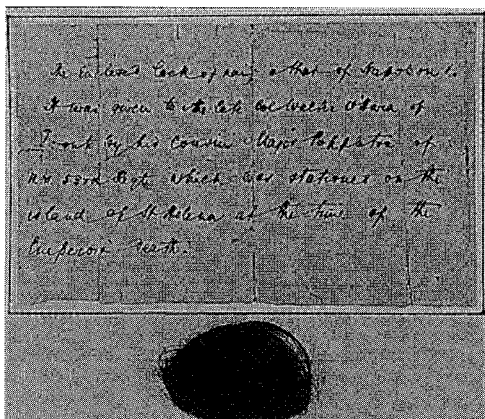 The enclosed lock of hair is that of Napoleon 1.
It was given to the late Col O'Hara of
by his cousin Major of
53rd Regt which was stationed on the
island of St Helena at the time of the
Emperor's death.